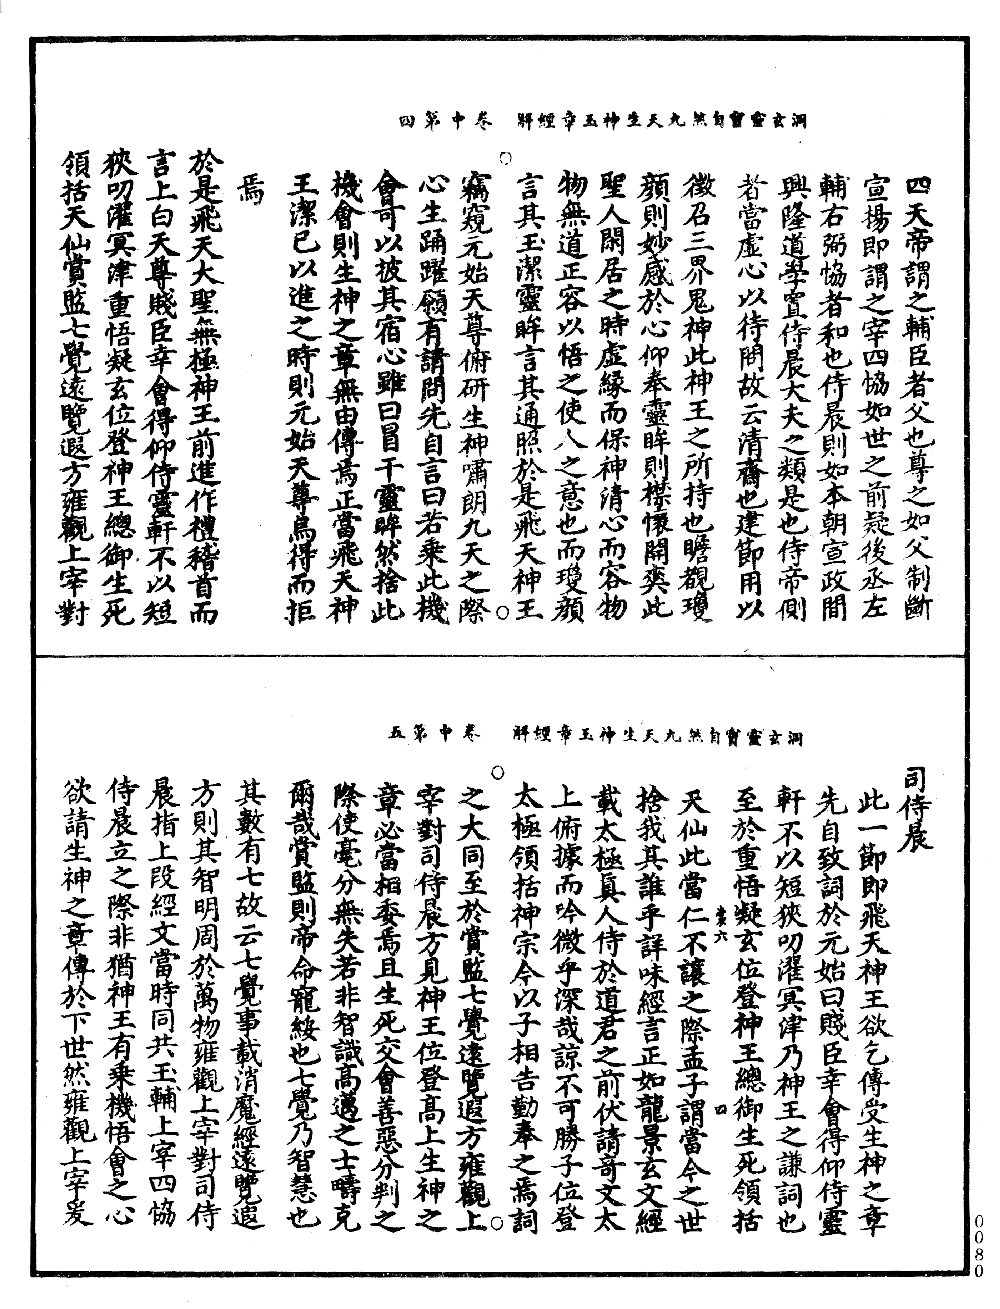 洞玄靈寶自然九天生神玉章經解　卷中第四
四天帝謂之輔臣者父也尊之如父制斷
宣揚即謂之宰四協如世之前疑後丞左
輔右弼協者和也侍晨則如本朝宣政閣
興隆道學宣侍晨大夫之類是也侍帝側
者當虛心以待問故云清齋也建節用以
徵召三界鬼神此神王之所持也瞻覩瓊
顏則妙感於心仰奉靈眸則襟懷開奐此
聖人閑居之時虛緣而保神清心而容物
物無道正容以悟之使人之意也而瓊顏
言其玉潔靈眸言其通照於是飛天神王
竊窺元始天尊俯研生神嘯朗九天之際
心生踊躍願有請問先自言曰若乘此機
會可以披其宿心雖曰冒干靈眸然捨此
機會則生神之章無由傳焉正當飛天神
王潔已以進之時則元始天尊烏得而拒
焉
於是飛天大聖無極神王前進作禮稽首而
言上白天尊賤臣幸會得仰侍靈軒不以短
狹叨濯冥津重悟凝玄位登神王總御生死
領括天仙賞監七覺遠覽遐方雍觀上宰對
洞玄靈寶自然九天生神玉章經解　卷中第五
司侍晨
此一節即飛天神王欲乞傳受生神之章
先自致詞於元始曰賤臣幸會得仰侍靈
軒不以短狹叨濯冥津乃神王之謙詞也
至於重悟凝玄位登神王總御生死領括
天仙此當仁不讓之際孟子謂當今之世
捨我其誰乎詳味經言正如龍景玄文經
載太極真人侍於道君之前伏請奇文太
上俯據而吟微乎深哉諒不可勝子位登
太極領括神宗今以子相告勤奉之焉詞
之大同至於賞監七覺遠覽遐方雍觀上
宰對司侍晨方見神王位登高上生神之
章必當相委焉且生死交會善惡分判之
際使毫分無失若非智識高邁之士疇克
爾哉賞監則帝命寵綏也七覺乃智慧也
其數有七故云七覺事載消魔經遠覽遐
方則其智明周於萬物雍觀上宰對司侍
晨指上段經文當時同共玉輔上宰四協
侍晨立之際非猶神王有乘機悟會之心
欲請生神之章傳於下世然雍觀上宰爰
0080